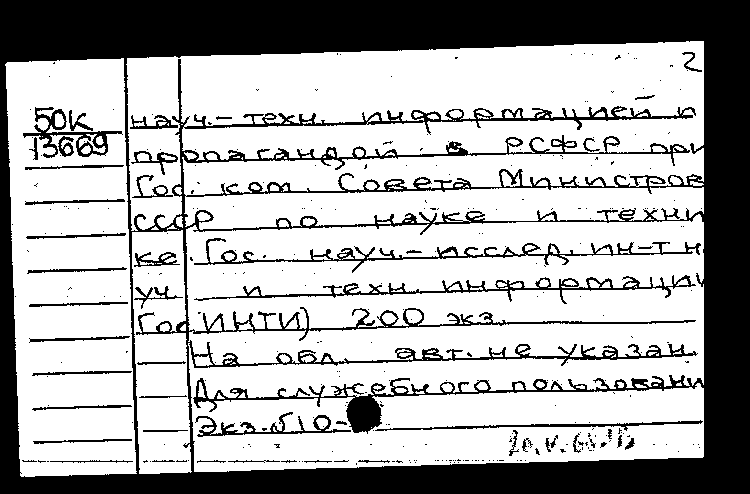 2
50К
13669
науч.-техн. информацией и
пропагандой в РСФСР при
Гос. ком. Совета Министров
СССР по науке и техни
ке. Гос. науч.-исслед. ин-т н
уч. и техн. информации
ГосИНТИ) 200 экз.
На обл. авт. не указан.
Для служебного пользовани
Экз. №10-